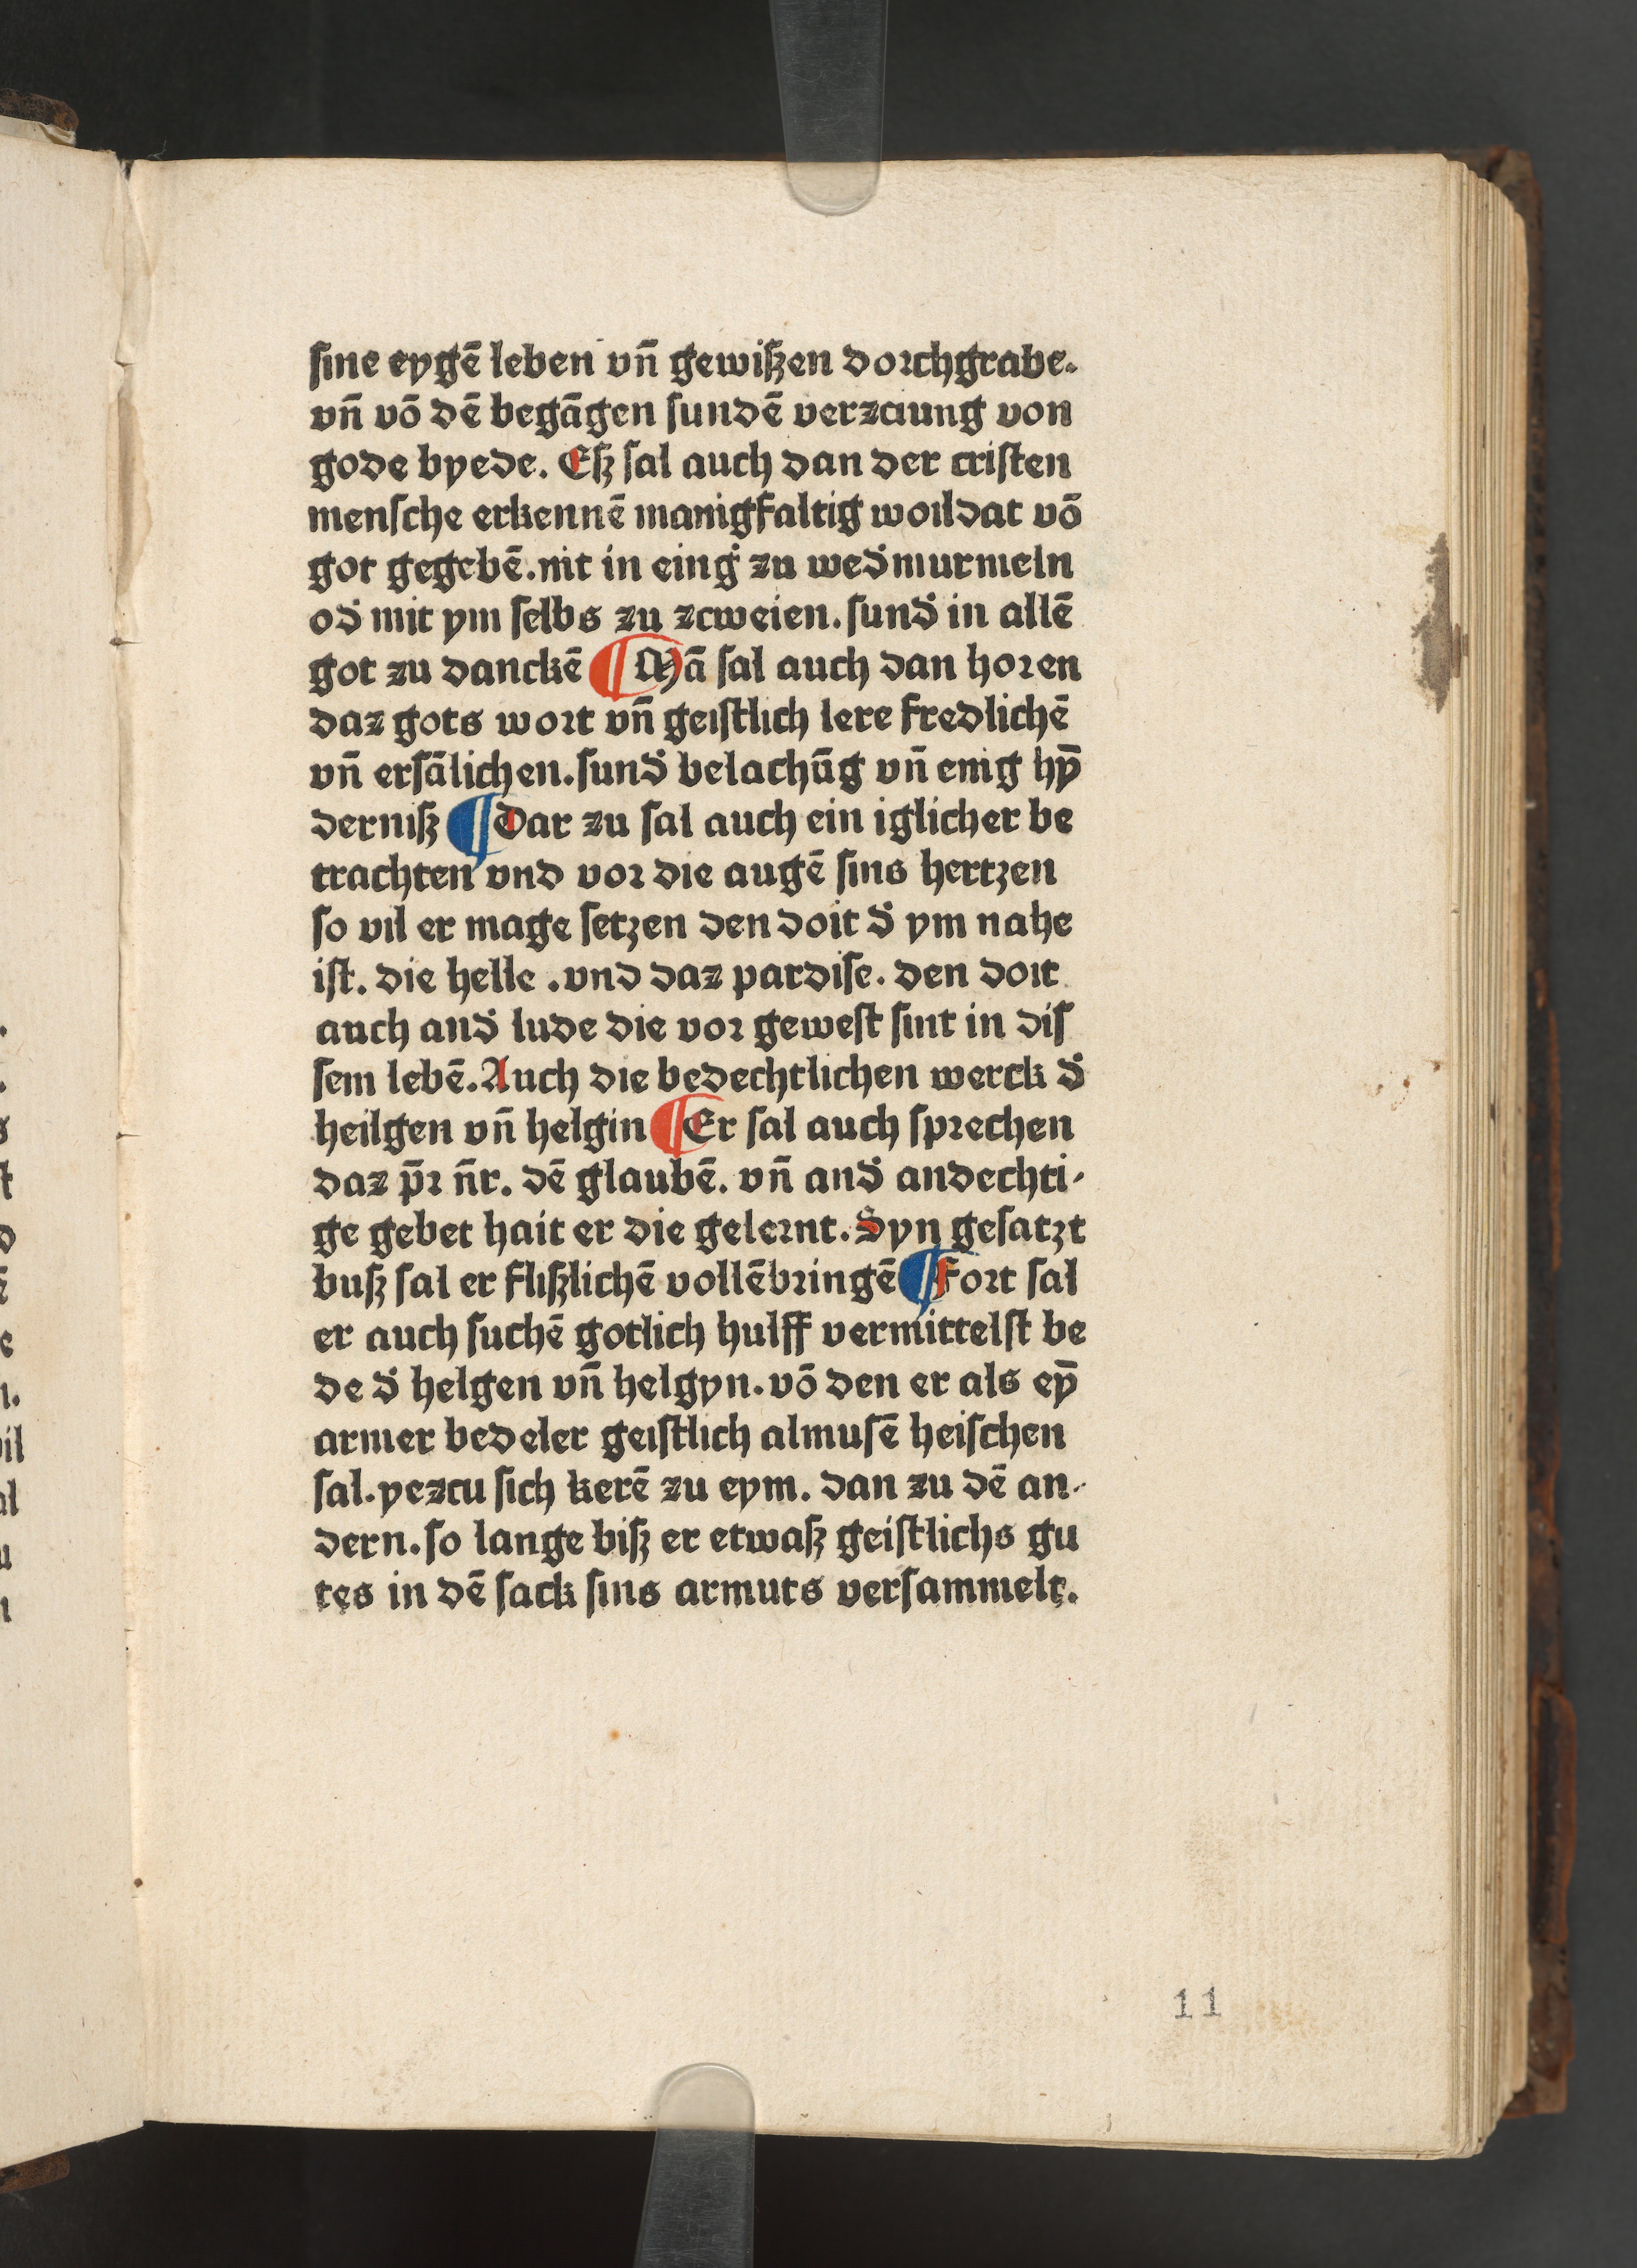 ſine eygē leben vn̄ gewiſzen dorchgrabe.
vn̄ vō dē begāgen ſundē verzciung von
gode byede. Eſz ſal auch dan der criſten
menſche erkennē manigfaltig woildat vō
got gegebē. nit in eing̈ zu wed̈murmeln
od̈ mit ym ſelbs zu zcweien. ſund̈ in allē
got zu danckē ¶ Mā ſal auch dan horen
daz gots wort vn̄ geiſtlich lere fredlichē
vn̄ erſālichen. ſund̈ belachūg vn̄ enig hȳ
derniſz ¶ Dar zu ſal auch ein iglicher be
trachten vnd vor die augē ſins hertzen
ſo vil er mage ſetzen den doit d̈ ym nahe
iſt. die helle . vnd daz pardiſe. den doit
auch and̈ lude die vor geweſt ſint in diſ
ſem lebē. Auch die bedechtlichen werck d̈
heilgen vn̄ helgin ¶ Er ſal auch ſprechen
daz p̄r n̄r. dē glaubē. vn̄ and̈ andechti⸗
ge gebet hait er die gelernt. Syn geſatzt
buſz ſal er fliſzlichē vollēbringē ¶ Fort ſal
er auch ſuchē gotlich hulff vermittelſt be
de d̈ helgen vn̄ helgyn. vō den er als eȳ
armer bedeler geiſtlich almuſē heiſchen
ſal. yezcu ſich kerē zu eym. dan zu dē an⸗
dern. ſo lange biſz er etwaſz geiſtlichs gu
tes in dē ſack ſins armuts verſammelt.
11